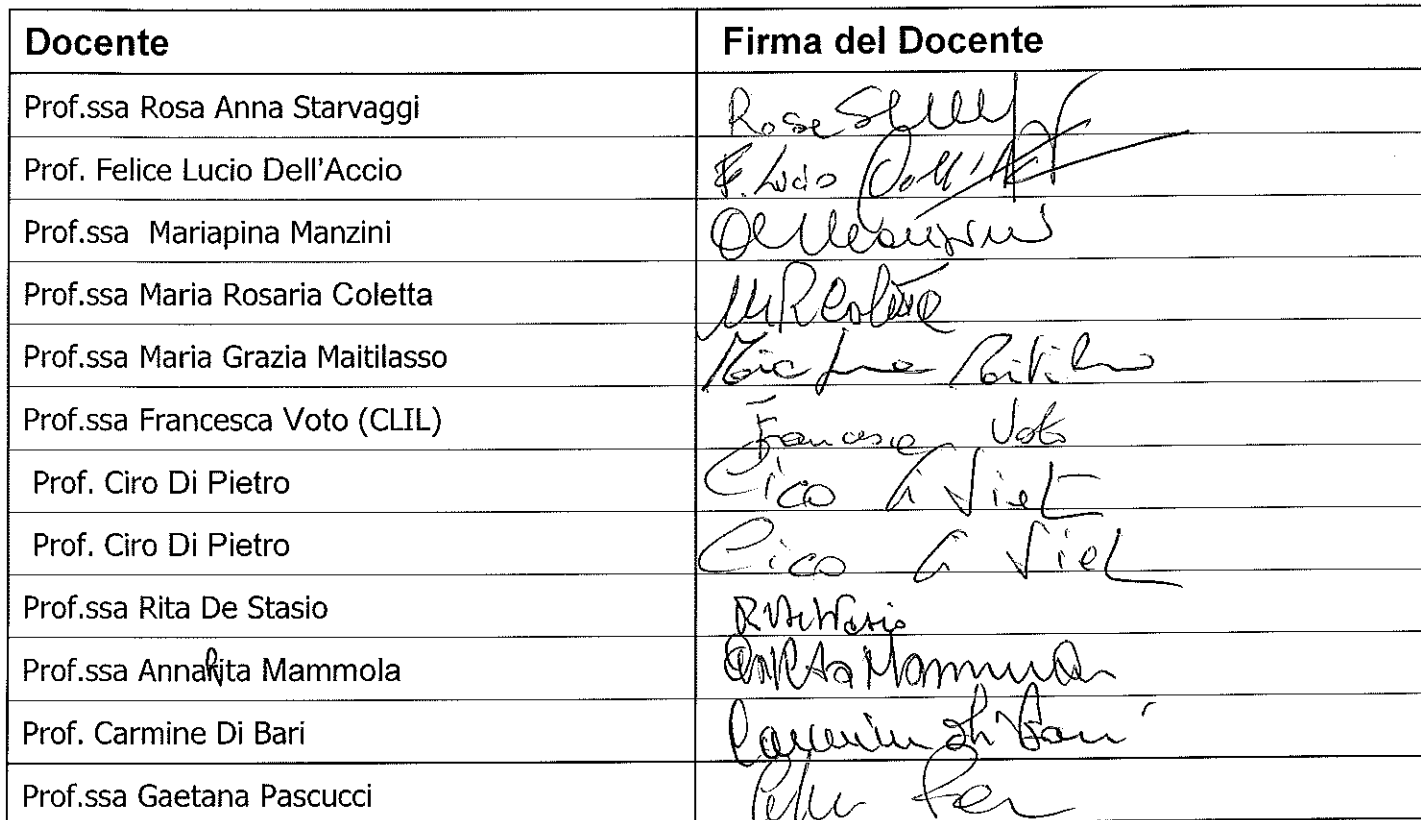 Docente Firma del Docente
Prof.ssa Rosa Anna Starvaggi Rosa
Prof. Felice Lucio Dell'Accio F. Lucio Dell'
Prof.ssa Mariapina Manzini
Prof.ssa Maria Rosaria Coletta MR Coletta
Prof.ssa Maria Grazia Maitilasso
Prof.ssa Francesca Voto (CLIL) Francesca Voto
Prof. Ciro Di Pietro Ciro Di
Prof. Ciro Di Pietro Ciro Di
Prof.ssa Rita De Stasio
Prof.ssa AnnaRita Mammola
Prof. Carmine Di Bari Carmine Di Bari
Prof.ssa Gaetana Pascucci